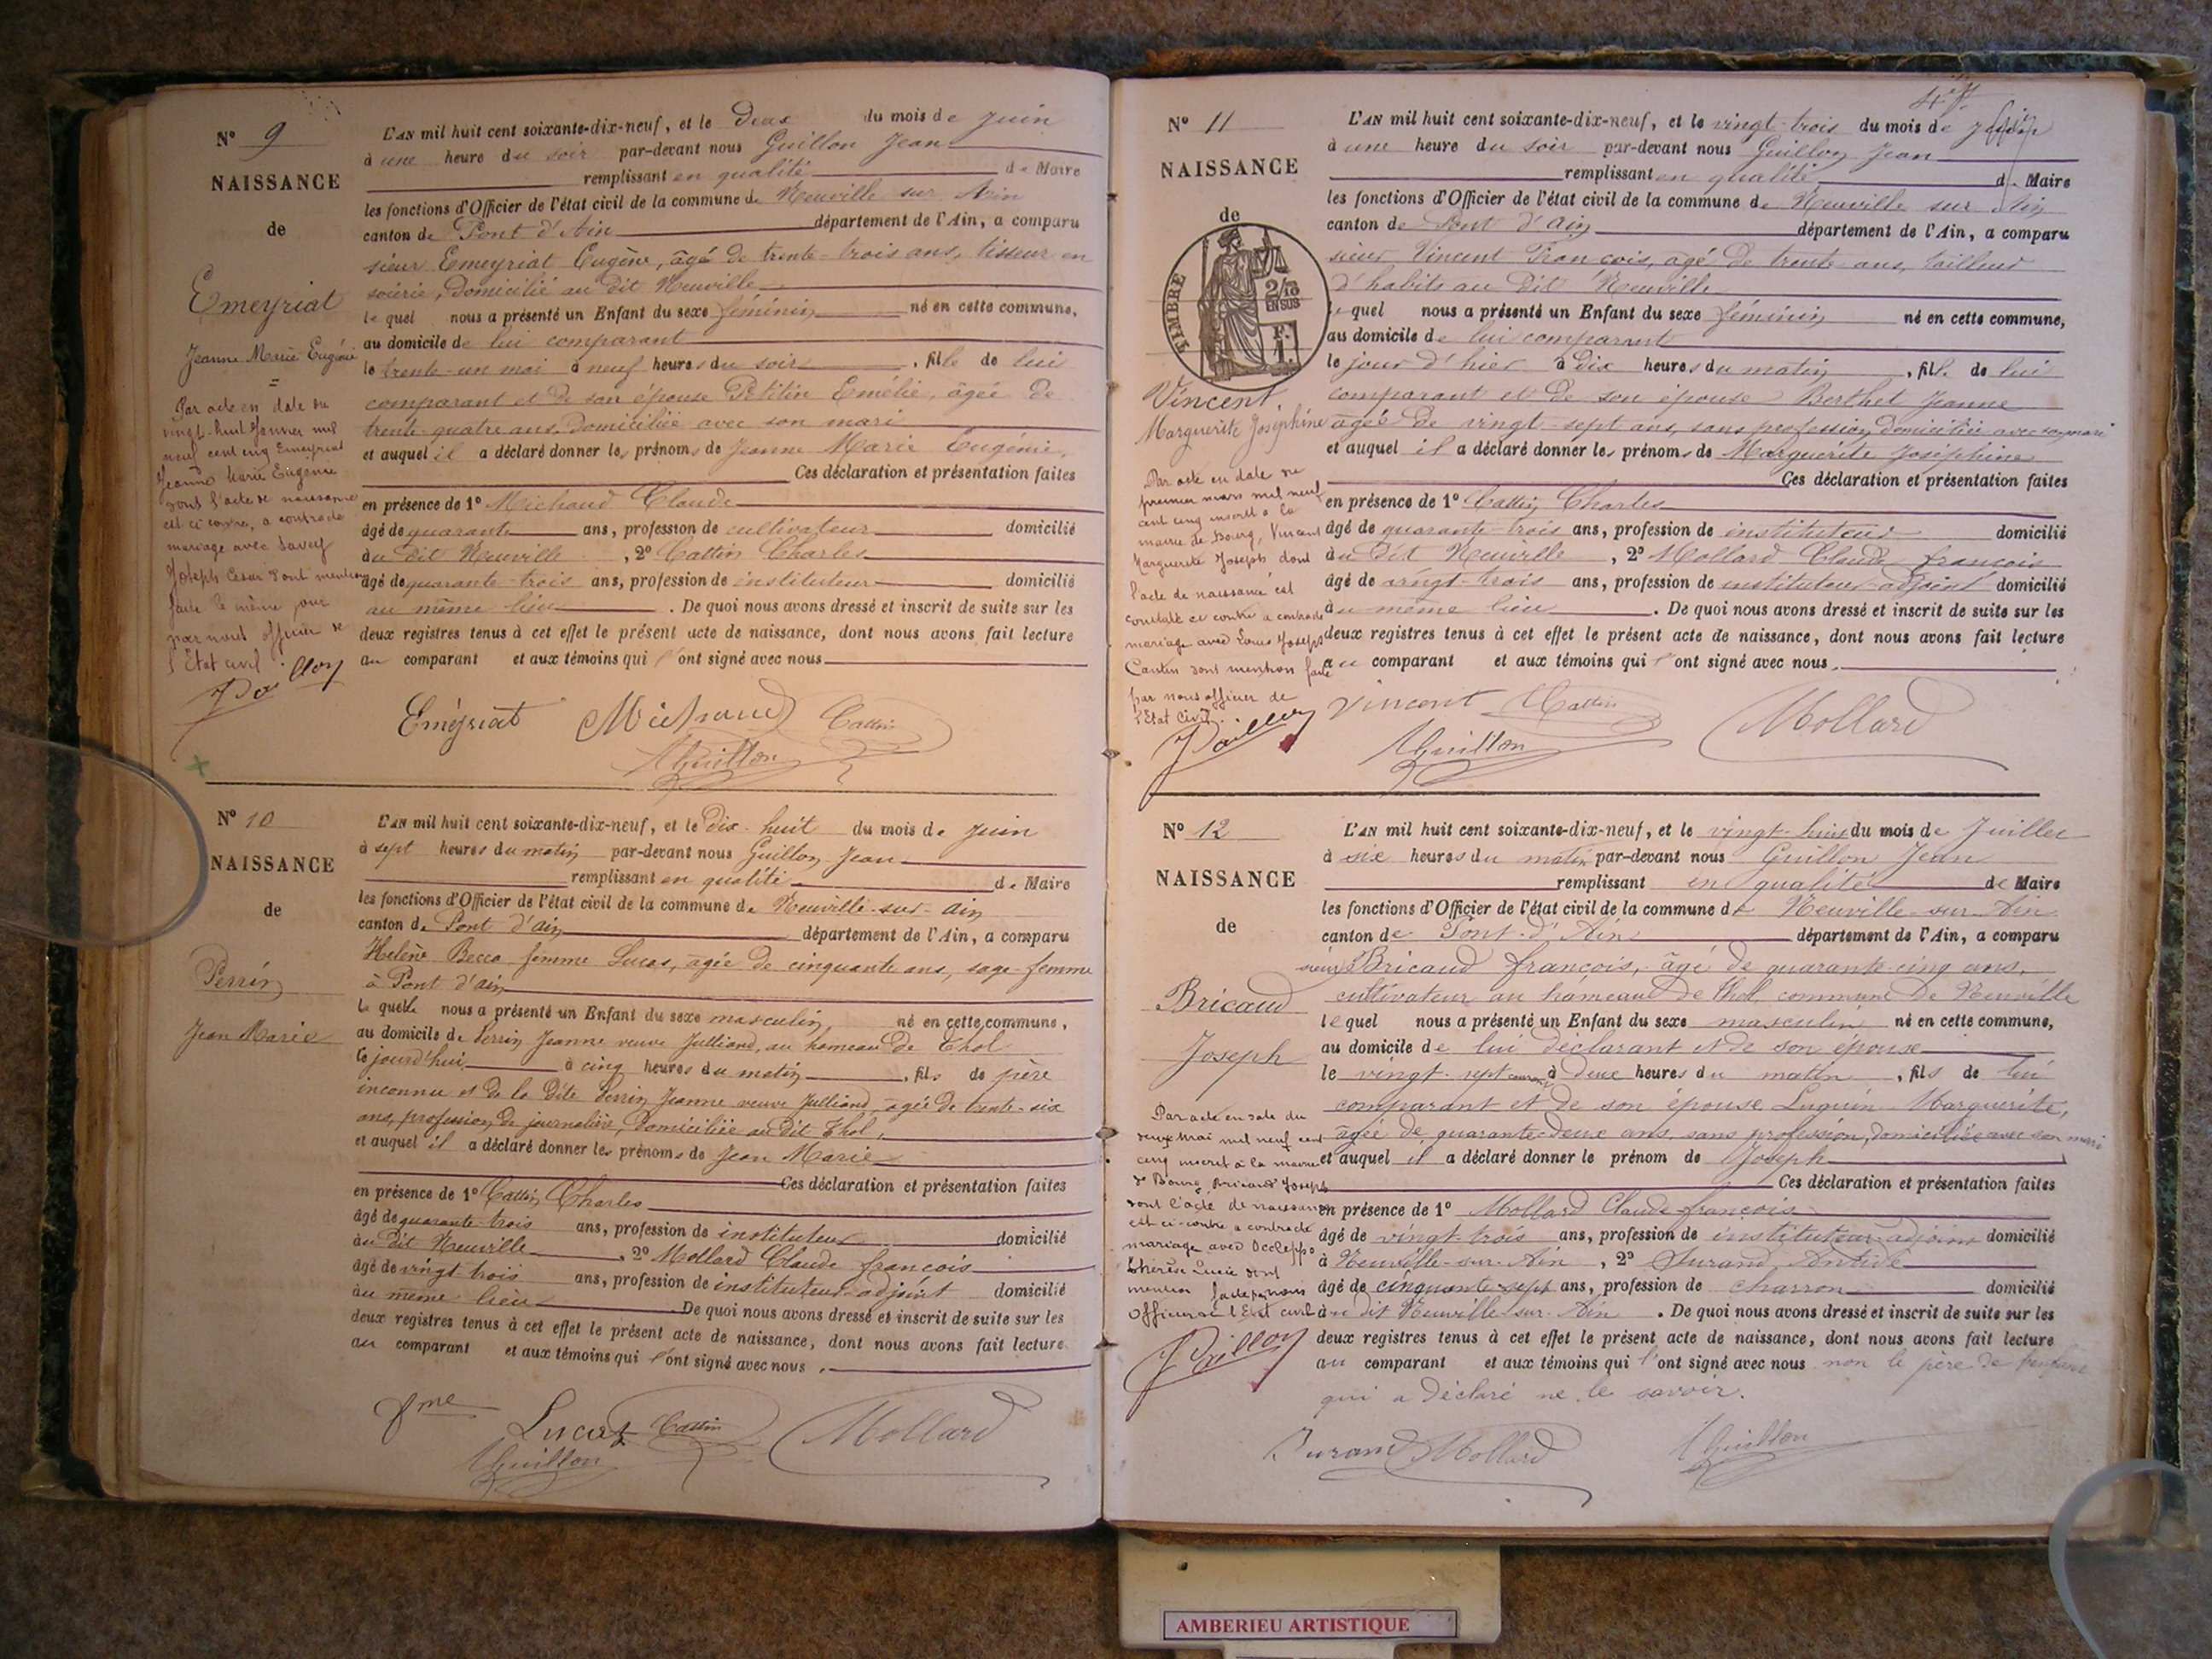 Nº 9
NAISSANCE
de
Emeyriat
Jeanne Marie Eugénie
Par acte en date du
vingt-huit Janvier mil
neuf cent cinq Emeyriat
Jeanne Marie Eugénie
dont l'acte de naissance
est ci contre, a contracté
mariage avec
Joseph César dont mention
faite le même jour
par nous officier de
l'Etat civil
L'AN mil huit cent soixante-dix-neuf, et le deux du mois de juin
à une heure du soir par-devant nous Guillon Jean
remplissant en qualité de Maire
les fonctions d'Officier de l'état civil de la commune de Neuville sur Ain
canton de Pont d'Ain département de l'Ain, a comparu
sieur Emeyriat Eugène, âgé de trente-trois ans, tisseur en
soierie, domicilié au dit Neuville
le quel nous a présenté un Enfant du sexe féminin né en cette commune,
au domicile de lui comparant
le trente-un mai à neuf heures du soir, fille de lui
comparant et de son épouse Petitin Emélie, âgée de
trente-quatre ans, domiciliée avec son mari
et auquel il a déclaré donner les prénoms de Jeanne Marie Eugénie.
Ces déclaration et présentation faites
en présence de 1º Michaud Claude
âgé de quarante ans, profession de cultivateur domicilié
au dit Neuville, 2º Cattin Charles
âgé de quarante-trois ans, profession de instituteur domicilié
au même lieu. De quoi nous avons dressé et inscrit de suite sur les
deux registres tenus à cet effet le présent acte de naissance, dont nous avons fait lecture
au comparant et aux témoins qui l'ont signé avec nous
Emeyriat Michaud Cattin
Guillon
Nº 10
NAISSANCE
de
Perrin
Jean Marie
L'AN mil huit cent soixante-dix-neuf, et le dix-huit du mois de juin
à sept heures du matin par-devant nous Guillon Jean
remplissant en qualité de Maire
les fonctions d'Officier de l'état civil de la commune de Neuville-sur-Ain
canton de Pont d'ain département de l'Ain, a comparu
Helène Becca femme Lucas, âgée de cinquante ans, sage-femme
à Pont d'ain
la quelle nous a présenté un Enfant du sexe masculin né en cette commune,
au domicile de Perrin Jeanne veuve Julliard, au hameau de Thol
ce jourd'hui à cinq heures du matin, fils de père
inconnu et de la dite Perrin Jeanne veuve Julliard, âgée de trente-six
ans, profession de journalière, domiciliée au dit Thol,
et auquel il a déclaré donner les prénoms de Jean Marie
Ces déclaration et présentation faites
en présence de 1º Cattin Charles
âgé de quarante-trois ans, profession de instituteur domicilié
au dit Neuville, 2º Mollard Claude françois
âgé de vingt trois ans, profession de instituteur-adjoint domicilié
au même lieu De quoi nous avons dressé et inscrit de suite sur les
deux registres tenus à cet effet le présent acte de naissance, dont nous avons fait lecture
au comparant et aux témoins qui l'ont signé avec nous.
fme Lucas Cattin Mollard
Guillon
Nº 11
NAISSANCE
de
TIMBRE
2/10
EN SUS
F.
1.
Vincent.
Marguerite Joséphine
Par acte en date du
premier mars mil neuf
cent cinq inscrit à la
mairie de Bourg, Vincent
Marguerite Joseph dont
l'acte de naissance est
constaté ci contre a contracté
mariage avec Louis Joseph
Cantin dont mention faite
par nous officier de
l'Etat Civil.
L'AN mil huit cent soixante-dix-neuf, et le vingt-trois du mois de
à une heure du soir par-devant nous Guillon Jean
remplissant en qualité de Maire
les fonctions d'Officier de l'état civil de la commune de Neuville sur Ain
canton de Pont d'Ain département de l'Ain, a comparu
sieur Vincent François, âgé de trente ans, tailleur
d'habits au dit Neuville
le quel nous a présenté un Enfant du sexe féminin né en cette commune,
au domicile de lui comparant
le jour d'hier à dix heures du matin, fille de lui
comparant et de son épouse Berthet Jeanne
âgée de vingt-sept ans, sans profession, domiciliée avec son mari
et auquel il a déclaré donner les prénoms de Marguerite Joséphine
Ces déclaration et présentation faites
en présence de 1º Cattin Charles
âgé de quarante-trois ans, profession de instituteur domicilié
au dit Neuville, 2º Mollard Claude françois
âgé de vingt-trois ans, profession de instituteur-adjoint domicilié
au même lieu. De quoi nous avons dressé et inscrit de suite sur les
deux registres tenus à cet effet le présent acte de naissance, dont nous avons fait lecture
au comparant et aux témoins qui l'ont signé avec nous.
Vincent Cattin Mollard
Guillon
Nº 12
NAISSANCE
de
Bricaud
Joseph
Par acte en date du
deux Mai mil neuf cent
cinq inscrit à la mairie
de Bourg, Bricaud Joseph
dont l'acte de naissance
est ci-contre a contracté
mariage avec Occleppo
Thérèse Lucie dont
mention faite par nous
Officier de l'Etat civil
L'AN mil huit cent soixante-dix-neuf, et le vingt-huit du mois de Juillet
à six heures du matin par-devant nous Guillon Jean
remplissant en qualité de Maire
les fonctions d'Officier de l'état civil de la commune de Neuville-sur-Ain
canton de Pont-d'Ain département de l'Ain, a comparu
sieur Bricaud françois, âgé de quarante-cinq ans,
cultivateur au hameau de Thol, commune de Neuville
le quel nous a présenté un Enfant du sexe masculin né en cette commune,
au domicile de lui déclarant et de son épouse
le vingt-sept courant à deux heures du matin, fils de lui
comparant et de son épouse Luquin Marguerite,
âgée de quarante-deux ans, sans profession, domiciliée avec son mari
et auquel il a déclaré donner le prénom de Joseph
Ces déclaration et présentation faites
en présence de 1º Mollard Claude-françois
âgé de vingt-trois ans, profession de instituteur-adjoint domicilié
à Neuville-sur-Ain, 2º Durand Antide
âgé de cinquante-sept ans, profession de charron domicilié
au dit Neuville-sur-Ain. De quoi nous avons dressé et inscrit de suite sur les
deux registres tenus à cet effet le présent acte de naissance, dont nous avons fait lecture
au comparant et aux témoins qui l'ont signé avec nous non le père de l'enfant
qui a déclaré ne le savoir.
Durand Mollard Guillon
AMBERIEU ARTISTIQUE